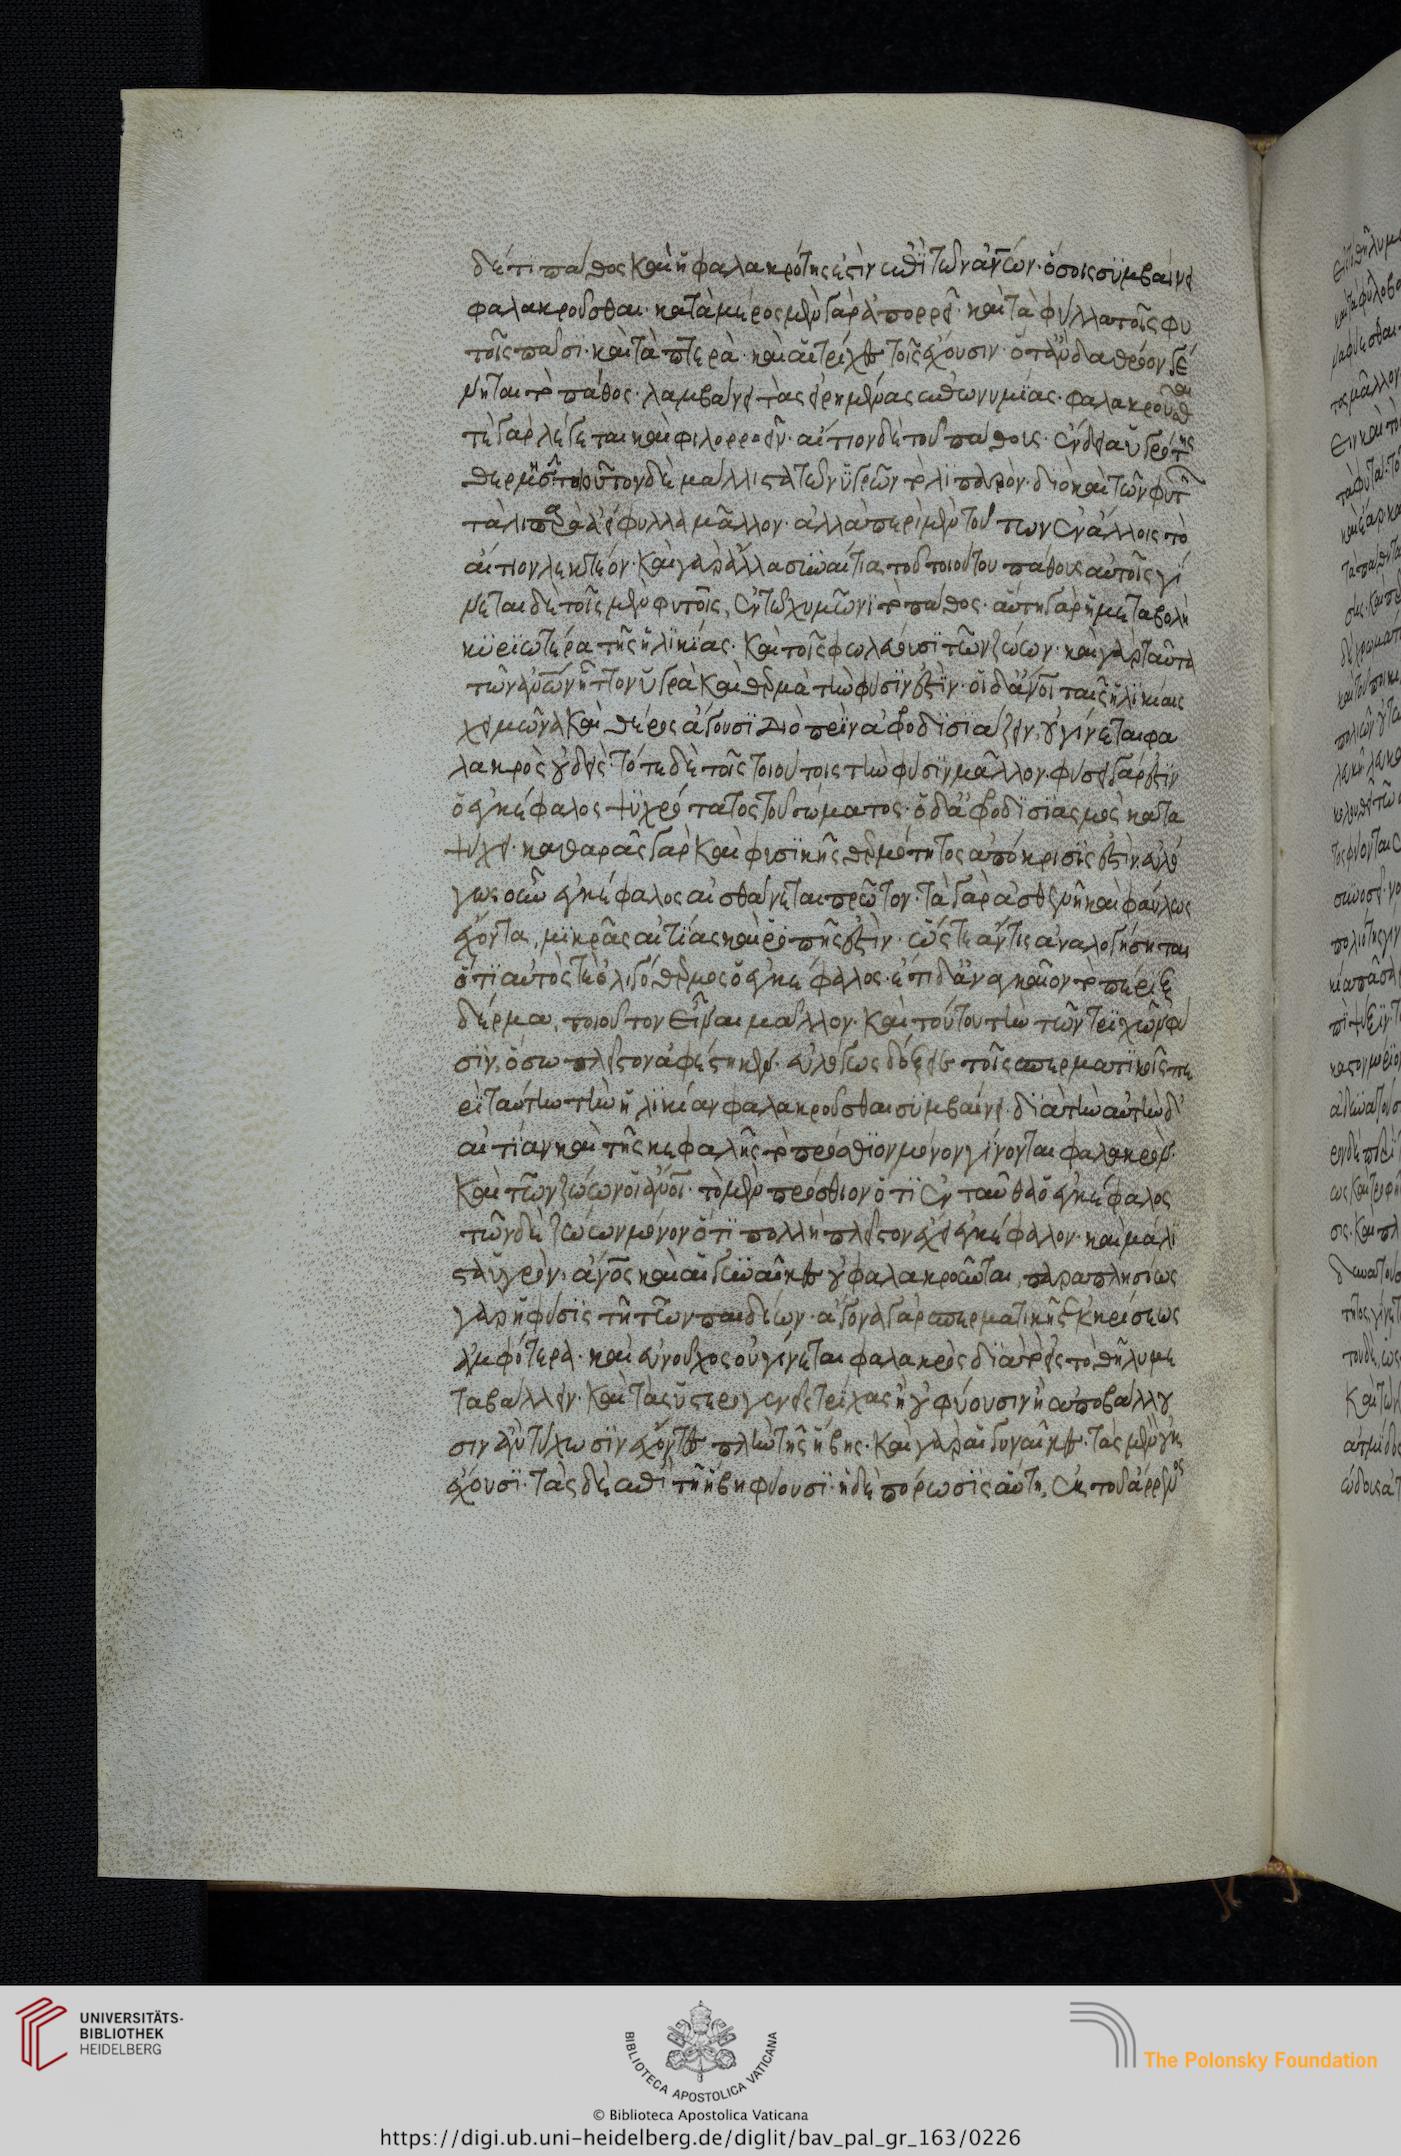 δέ τι πάθος καὶ ἡ φαλακρότης ἐστὶν ἐπὶ τῶν ἀν̅ων· ὅσοις συμβαίνει
φαλακροῦσθαι· κατὰ μέρος μὲν γὰρ ἀπορρεῖ· καὶ τὰ φύλλα τοῖς φυ
τοῖς πᾶσι· καὶ τὰ πτερὰ· καὶ αἱ τρίχες τοῖς ἔχουσιν· ὅταν δ' ἀθρόον γέ
νηται τὸ πάθος· λαμβάνει τὰς εἰρημένας ἐπωνυμίας· φαλακροῦσθαι
τε γὰρ λέγεται καὶ φιλορροεῖν· αἴτιον δὲ τοῦ πάθους· ἔνδεια ὑγρότης
θερμῆς· τοιοῦτον δὲ μάλλιστα τῶν ὑγρῶν τὸ λιπαρόν· διὸ καὶ τῶν φυτ
τὰ λιπαρὰ ἀείφυλλα μᾶλλον· ἀλλὰ περὶ μὲν τούτων ἐν ἄλλοις τὸ
αἴτιον λεκτέον· καὶ γὰρ ἄλλα συναίτια τοῦ τοιούτου πάθους αὐτοῖς γί
νεται δὲ τοῖς μὲν φυτοῖς, ἐν τῶ χειμῶνι τὸ πάθος· αὕτη γὰρ ἡ μεταβολὴ
κυριωτέρα τῆς ἡλικίας· καὶ τοῖς φωλεύουσι τῶν ζώων· καὶ γὰρ ταῦτα
τῶν ἀν̅ων ἧττον ὑγρὰ καὶ θερμὰ τὴν φύσιν ἐστίν· οἱ δ' ἀν̅οι ταῖς ἡλικίαις
χειμῶνα καὶ θέρος ἄγουσι διὸ πρὶν ἀφροδισιάζειν, οὐ γίνεται φα
λακρὸς οὐδείς· τότε δὲ τοῖς τοιούτοις τὴν φύσιν μᾶλλον· φύσει γάρ ἐστιν
ὁ ἐγκέφαλος ψυχρότατος τοῦ σώματος· ὁ δ' ἀφροδισιασμὸς κατα
ψύχει· καθαρᾶς γὰρ καὶ φυσικῆς θερμότητος ἀπόκρισίς ἐστιν· εὐλό
γως οὖν ὁ ἐγκέφαλος αἰσθάνεται πρῶτον· τὰ γὰρ ἀσθενῆ καὶ φαύλως
ἔχοντα, μικρᾶς αἰτίας καὶ ῥοπῆς ἐστίν· ὥστε ἄν τις ἀναλογίσηται
ὅτι αὐτός τε ὀλιγόθερμος ὁ ἐγκέφαλος· ἔτι δ' ἀναγκαῖον τὸ πέριξ
δέρμα, τοιοῦτον εἶναι μᾶλλον· καὶ τούτου τὴν τῶν τριχῶν φύ
σιν, ὅσω πλεῖστον ἀφέστηκεν· εὐλόγως δόξειε τοῖς σπερματικοῖς πε
ρὶ ταύτην τὴν ἡλικίαν φαλακροῦσθαι συμβαίνει· διὰ τὴν αὐτὴν δ'
αἰτίαν καὶ τῆς κεφαλῆς τὸ πρόσθιον μόνον γίνονται φαλακροὶ·
καὶ τῶν ζώων οἱ ἀν̅οι· τὸ μὲν πρόσθιον ὅτι ἐνταῦθα ὁ ἐγκέφαλος
τῶν δὲ ζώων μόνον ὅτι πολλὴ πλεῖστον ἔχει ἐγκέφαλον· καὶ μάλι
στα ὑγρὸν· ἄν̅ος καὶ αἱ γυναῖκες οὐ φαλακροῦνται, παραπλησίως
γὰρ ἡ φύσις τῆ τῶν παιδίων· ἄγονα γὰρ σπερματικῆς ἐκκρίσεως
ἀμφότερα· καὶ εὐνοῦχος οὐ γίνεται φαλακρὸς διὰ τὸ εἰς τὸ θῆλυ με
ταβάλλειν· καὶ τὰς ὑστερογενεῖς τρίχας ἢ οὐ φύουσιν ἢ ἀποβάλλου
σιν ἂν τύχωσιν ἔχοντες πλὴν τῆς ἥβης· καὶ γὰρ αἱ γυναῖκες· τὰς μὲν οὐκ
ἔχουσι· τὰς δὲ ἐπὶ τῆ ἥβη φύουσι· ἡ δὲ πόρωσις αὕτη, ἐκ τοῦ ἄρρενος
UNIVERSITÄTS-
BIBLIOTHEK
HEIDELBERG
BIBLIOTECA APOSTOLICA VATICANA
The Polonsky Foundation
© Biblioteca Apostolica Vaticana
https://digi.ub.uni-heidelberg.de/diglit/bav_pal_gr_163/0226